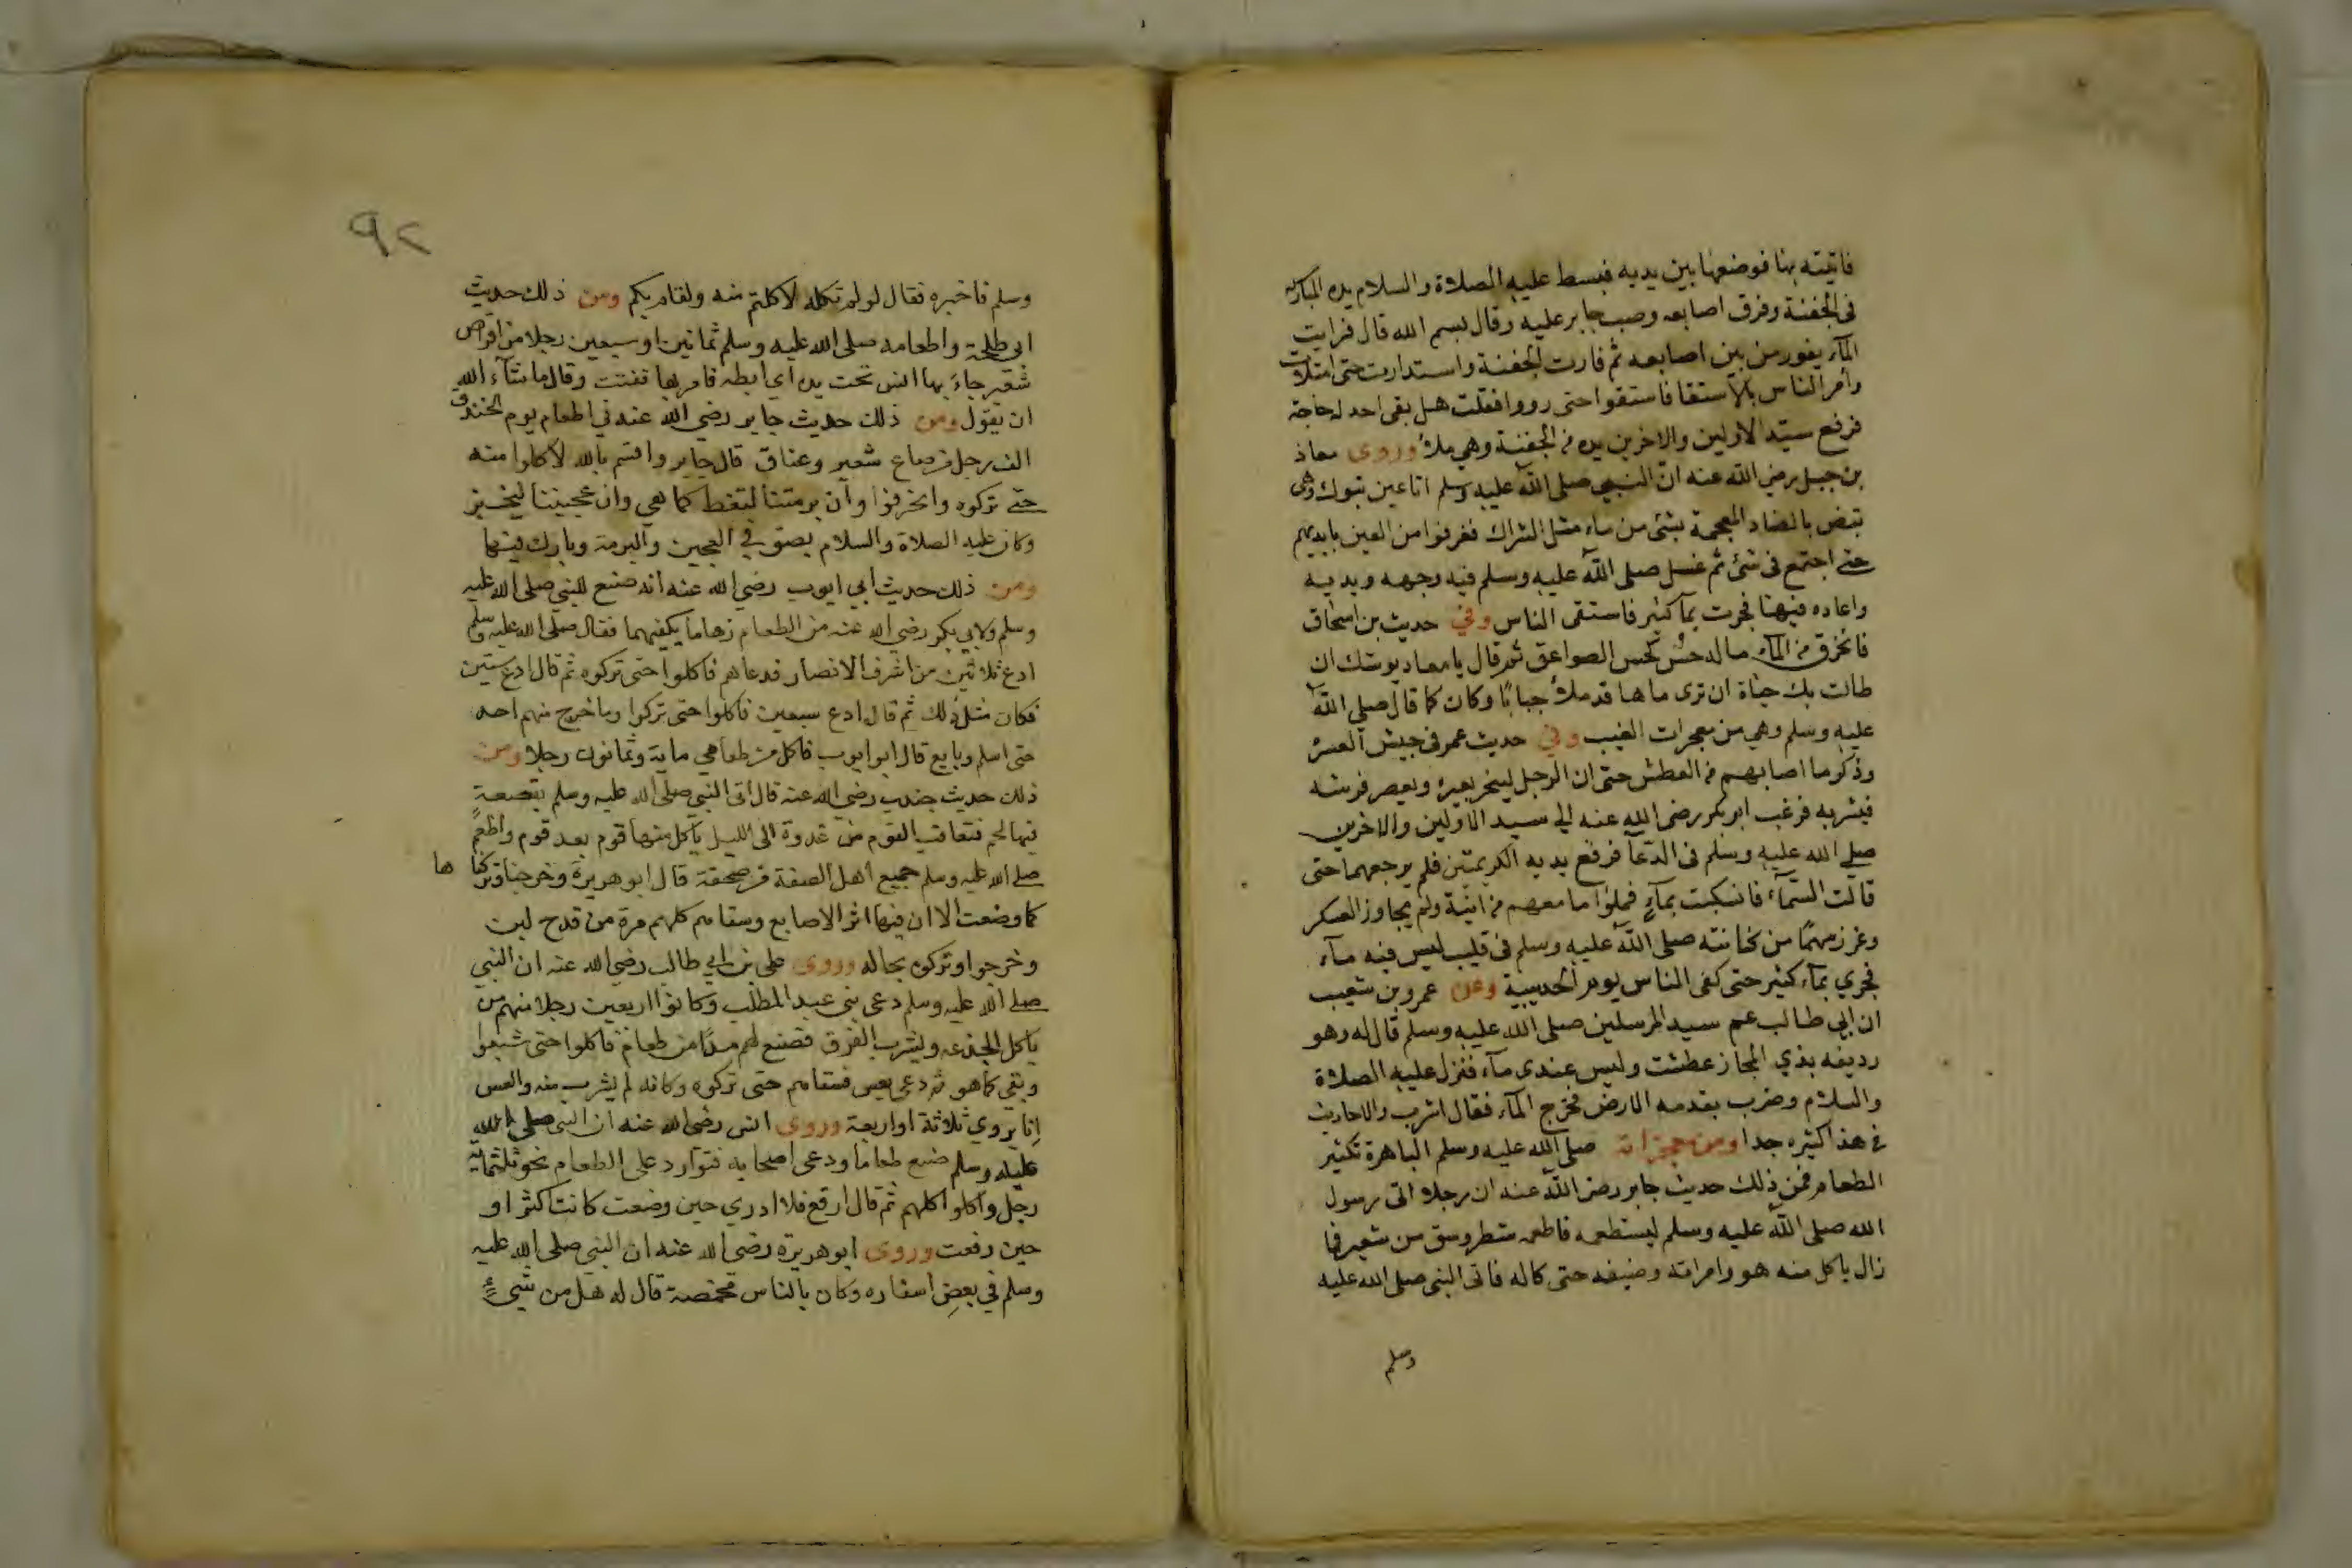 فاتيته بها فوضعها بين يديه فبسط عليه الصلاة والسلام يده المباركه
في الجفنة وفرق اصابعه وصب جابر عليه وقال بسم الله قال فرايت
المآء يفور من بين اصابعه ثم فارت الجفنة واستدارت حتى امتلات
وأمر الناس بالاستقا فاستقوا حتى رووا فقلت هل بقى احد له حاجة
فرفع سيد الاولين والاخرين يده من الجفنة وهي ملأ وروى معاذ
بن جبل رضي الله عنه ان النبي صلى الله عليه وسلم اتا عين تبوك وهى
تبض بالضاد المعجمة بشئ من ماء مثل الشراك فغرفوا من العين بايديهم
حتى اجتمع فى شئ ثم غسل صلى الله عليه وسلم فيه وجهه ويديه
واعاده فيها فجرت بمآ كثير فاستقى الناس وفي حديث بن اسحاق
فانخرق من المآء ماله حس كحس الصواعق ثم قال يا معاد يوشك ان
طالت بك حياة ان ترى ماها قد ملأ جبابا وكان كما قال صلى الله
عليه وسلم وهي من معجزات الغيب وفي حديث عمر فى جيش العسرة
وذكر ما اصابهم من العطش حتى ان الرجل لينحر بعيره ويعصر فرشه
فيشربه فرغب ابو بكر رضى الله عنه الى سيد الاولين والاخرين
صلى الله عليه وسلم فى الدعآ فرفع يديه الكريمتين فلم يرجعهما حتى
قالت السمآء فانسكبت بمآءٍ فملوا ما معهم من انية ولم يجاوز العسكر
وغرز سهمًا من كنانته صلى الله عليه وسلم فى قليب ليس فيه مآء
فجري بمآء كثير حتى كفى الناس يوم الحديبية وعن عمرو بن شعيب
ان ابي طالب عم سيد المرسلين صلى الله عليه وسلم قال له وهو
رديفه بذي المجاز عطشت وليس عندى مآء فنزل عليه الصلاة
والسلام وضرب بقدمه الارض فخرج المآء فقال اشرب والاحاديث
في هذا كثيره جدا ومن معجزاته صلى الله عليه وسلم الباهرة تكثير
الطعام فمن ذلك حديث جابر رضى الله عنه ان رجلا اتى رسول
الله صلى الله عليه وسلم ليستطعمه فاطعمه شطر وسق من شعير فما
زال ياكل منه هو وامراته وضيفه حتى كاله فاتى النبى صلى الله عليه
وسلم
٩٢
وسلم فاخبره فقال لو لم تكله لاكلتم منه ولقام بكم ومن ذلك حديث
ابى طلحة واطعامه صلى الله عليه وسلم ثمانين او سبعين رجلا من اقراص
شعير جاءَ بها انس تحت يده اي ابطه فامر بها ففتت وقال ما شآء الله
ان يقول ومن ذلك حديث جابر رضي الله عنه في اطعام يوم الخندق
الف رجل من صاع شعير وعناق قال جابر واقسم بالله لاكلوا منه
حتى تركوه وانحرفوا وأن برمتنا لتغط كما هي وان عجيننا ليخبز
وكان عليه الصلاة والسلام بصق في العجين والبرمة وبارك فيها
ومن ذلك حديث ابي ايوب رضي الله عنه انه صنع للنبى صلى الله عليه
وسلم ولابي بكر رضي الله عنه من الطعام زهاما يكفيهما فقال صلى الله عليه وسلم
ادع ثلاثين من اشرف الانصار فدعاهم فاكلوا حتى تركوه ثم قال ادع ستين
فكان مثل ذلك ثم قال ادع سبعين فاكلوا حتى تركوا وما خرج منهم احد
حتى اسلم وبايع قال ابو ايوب فاكل من طعامي ماية وثمانون رجلا ومن
ذلك حديث جندب رضي الله عنه قال اتى النبي صلى الله عليه وسلم بقصعةٍ
فيها لحم فتعاقب القوم من غدوة الى الليل ياكل منها قوم بعد قوم واطعم
صلى الله عليه وسلم جميع اهل الصفة من صحفة قال ابو هريرة وخرجنا وتركنا ها
كما وضعت الا ان فيها اثر الاصابع وسقاهم كلهم مرة من قدح لبن
وخرجوا وتركوه بحاله وروى على بن ابي طالب رضي الله عنه ان النبي
صلى الله عليه وسلم دعى بنى عبد المطلب وكانوا اربعين رجلا منهم من
ياكل الجذعه ويشرب الفرق فصنع لهم مدًا من طعام فاكلوا حتى شبعوا
وبقي كما هو ثم دعى بعس فسقاهم حتى تركوه وكانه لم يشرب منه والعس
انا يروي ثلاثة او اربعة وروى انس رضى الله عنه ان النبى صلى الله
عليه وسلم صنع طعاما ودعى اصحابه فتوارد على الطعام نحو ثلثماية
رجل واكلوا كلهم ثم قال ارفع فلا ادري حين وضعت كانت اكثر او
حين رفعت وروى ابو هريرة رضى الله عنه ان النبي صلى الله عليه
وسلم في بعض اسفاره وكان بالناس مخمصة قال له هل من شيءٍ